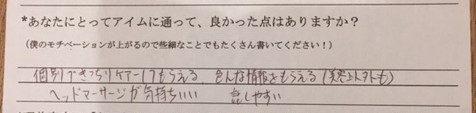 *あなたにとってアイムに通って、良かった点はありますか?
(僕のモチベーションが上がるので些細なことでもたくさん書いてください!)
個別できっちりケアーしてもらえる、色んな情報をもらえる(美容以外も)
ヘッドマッサージが気持ちいい 話しやすい